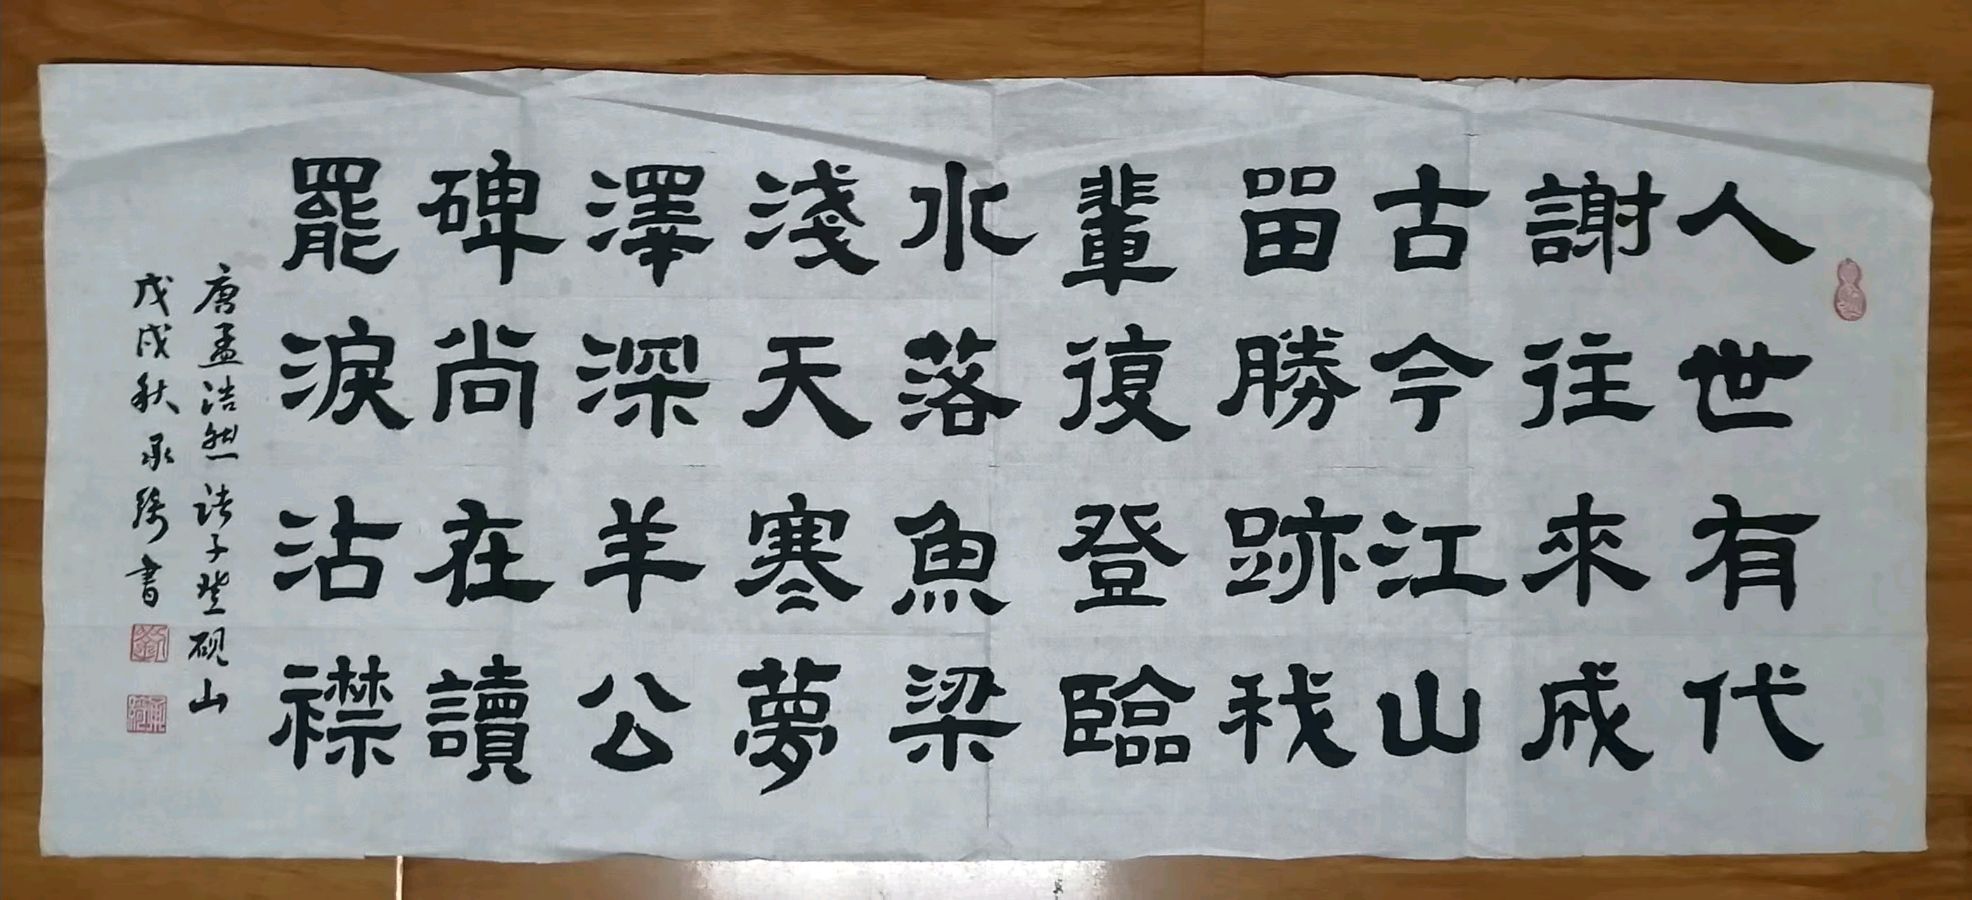 人世有代
謝往來成
古今江山
畱勝跡我
輩復登臨
水落魚梁
淺天寒夢
澤深羊公
碑尚在讀
罷淚沾襟
唐孟浩然诗子登砚山
戊戌秋承琦書